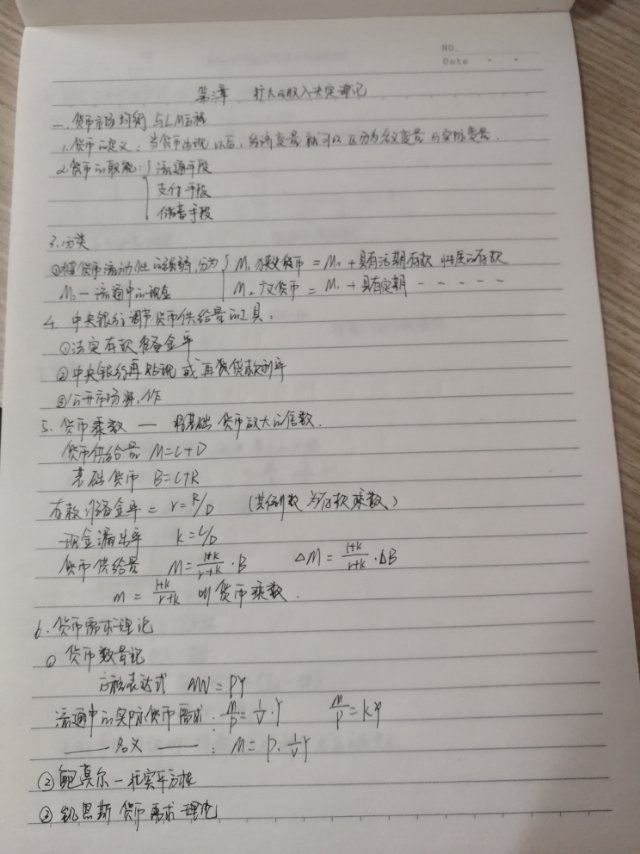 NO.
Date
第三章 扩大的收入决定理论
一.货币市场均衡与LM曲线
1.货币的定义:当货币出现以后,经济变量就可以区分为名义变量与实际变量.
2.货币的职能:流通手段
支付手段
储蓄手段
3.分类
①按货币流动性的强弱,分为 M₁狭义货币 = M₀+具有活期存款性质的存款
M₀—流通中的现金 M₂广义货币 = M₁+具有定期 - - - - -
4.中央银行调节货币供给量的工具:
①法定存款准备金率
②中央银行再贴现或再贷款利率
③公开市场操作
5.货币乘数 — 指基础货币放大的倍数.
货币供给量 M=C+D
基础货币 B=C+R
存款准备金率 = r=R/D (其倒数为存款乘数)
现金漏出率 k=C/D
货币供给量 M=\frac{1+k}{r+k}·B ΔM=\frac{1+k}{r+k}·ΔB
m=\frac{1+k}{r+k} 叫货币乘数.
6.货币需求理论
① 货币数量论
方程表达式 MV=PY
流通中的实际货币需求:\frac{M}{P}=\frac{1}{V}·Y \frac{M}{P}=kY
—— 名义 —— : M=P·\frac{1}{V}Y
②鲍莫尔—托宾平方根
③凯恩斯货币需求理论